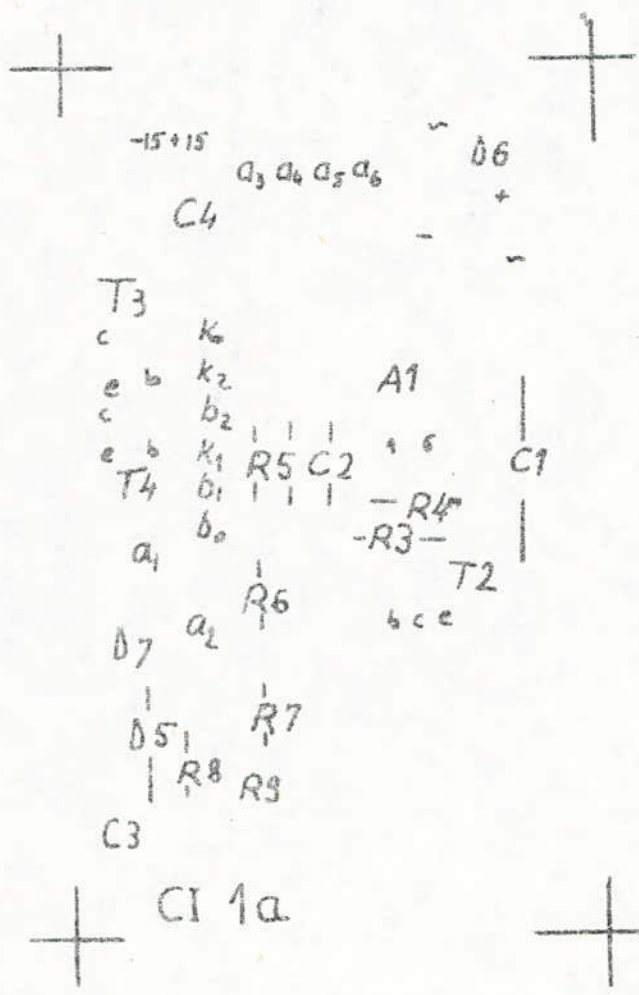 -15 +15
~ D6
a₃ a₄ a₅ a₆
+
C4
- ~
T3
c k₀
e b k₂
A1
c b₂
e b k₁ R5 C2 1 6 C1
T4 b₁
- R4 -
b₀ - R3 -
a₁
T2
R6
a₂ b c e
D7
R7
D5
R8 R9
C3
CI 1a